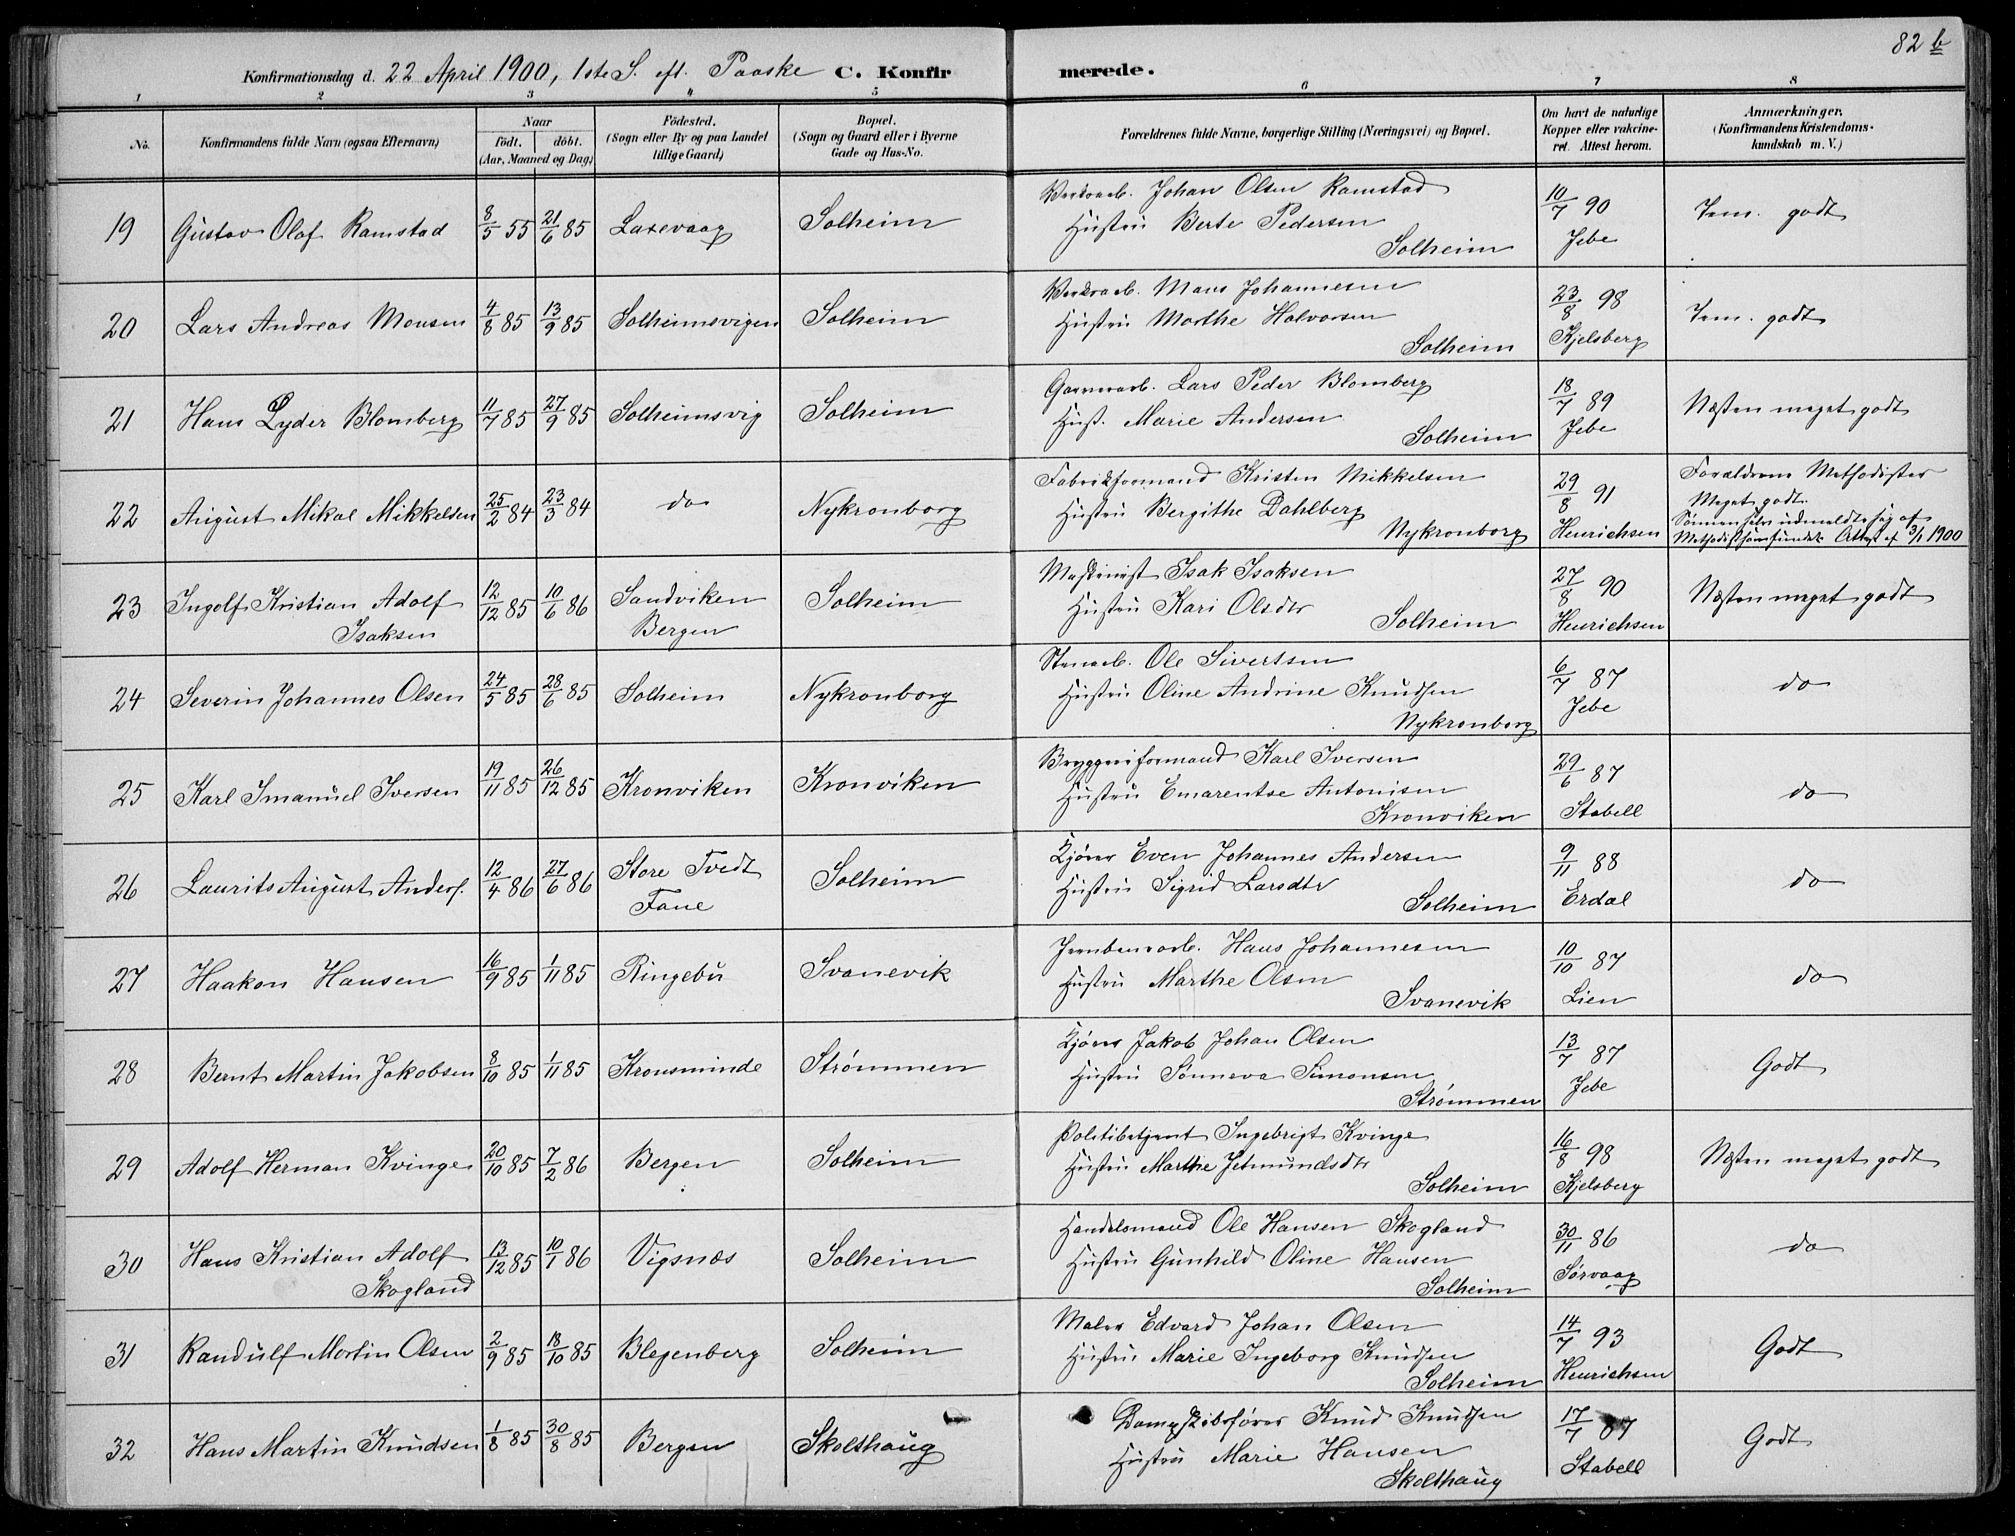 82 b
Konfirmationsdag d. 22 April 1900, 1ste S. eft. Paaske C. Konfirmerede.
1 2 3 4 5 6 7 8
No. Konfirmandens fulde Navn (ogsaa Efternavn) Naar født. døbt. (Aar, Maaned og Dag) Fødested. (Sogn eller By og paa Landet tillige Gaard) Bopæl. (Sogn og Gaard eller i Byerne Gade og Hus-No. Forældrenes fulde Navne, borgerlige Stilling (Næringsvei) og Bopæl. Om havt de naturlige Kopper eller vakcineret. Attest herom. Anmærkninger. (Konfirmandens Kristendomskundskab m. V.)
19 Gustav Olaf Ramstad 8/5 55 21/6 85 Laxevaag Solheim Verksarb. Johan Olsen Ramstad
Hustru Berte Pedersen
Solheim 10/7 90 Jebe Tem. godt
20 Lars Andreas Monsen 4/8 85 13/9 85 Solheimsvigen Solheim Verksarb. Mons Johannesen
Hustru Marthe Halvorsen
Solheim 23/8 98 Kjelsberg Tem. godt
21 Hans Lyder Blomberg 11/7 85 27/9 85 Solheimsvig Solheim Garverarb. Lars Peder Blomberg
Hust. Marie Andersen
Solheim 18/7 89 Jebe Næsten meget godt
22 August Mikal Mikkelsen 25/2 84 23/3 84 do Nykronborg Fabrikformand Kristen Mikkelsen
Hustru Bergithe Dahlberg
Nykronborg 29/8 91 Henrichsen Forældrene Methodister
Meget godt.
Sønnen selv udmeldte sig af
Methodistsamfundet. Attest af 3/1 1900
23 Ingolf Kristian Adolf
Isaksen 12/12 85 10/6 86 Sandviken
Bergen Solheim Maskinist Isak Isaksen
Hustru Kari Olsdtr
Solheim 27/8 90 Henrichsen Næsten meget godt
24 Severin Johannes Olsen 24/5 85 28/6 85 Solheim Nykronborg Stenarb. Ole Sivertsen
Hustru Oline Andrine Knudsen
Nykronborg 6/7 87 Jebe do
25 Karl Imanuel Iversen 19/11 85 26/12 85 Kronviken Kronviken Bryggeriformand Karl Iversen
Hustru Emarentse Antonisen
Kronviken 29/6 87 Stabell do
26 Laurits August Anders. 12/4 86 27/6 86 Store Tvedt
Fane Solheim Kjører Even Johannes Andersen
Hustru Sigrid Larsdtr
Solheim 9/11 88 Erdal do
27 Haakon Hansen 16/9 85 1/11 85 Ringebu Svanevik Jernbanearb. Hans Johannesen
Hustru Marthe Olsen
Svanevik 10/10 87 Lien do
28 Bernt Martin Jakobsen 8/10 85 1/11 85 Kronsminde Strømmen Kjører Jakob Johan Olsen
Hustru Sønneva Simonsen
Strømmen 13/7 87 Jebe Godt
29 Adolf Herman Kvinge 20/10 85 7/2 86 Bergen Solheim Politibetjent Ingebrigt Kvinge
Hustru Marthe Jetmundsdtr
Solheim 16/8 98 Kjelsberg Næsten meget godt
30 Hans Kristian Adolf
Skogland 13/12 85 10/1 86 Vigsnæs Solheim Handelsmand Ole Hansen Skogland
Hustru Gunhild Oline Hansen
Solheim 30/11 86 Sørvaag do
31 Randulf Martin Olsen 2/9 85 18/10 85 Blegenberg Solheim Maler Edvard Johan Olsen
Hustru Marie Ingeborg Knudsen
Solheim 14/7 93 Henrichsen Godt
32 Hans Martin Knudsen 1/8 85 30/8 85 Bergen Skolthaug Dampskibsfører Knud Knudsen
Hustru Marie Hansen
Skolthaug 17/7 87 Stabell Godt